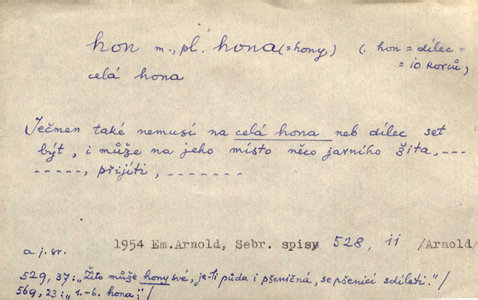 hon m., pl. hona (= hony) (. hon = dílec =
celá hona = 10 korců,
Ječmen také nemusí na celá hona neb dílec set
být, i může na jeho místo něco jarního žita, ---
-----, přijíti, -------
1954 Em.Arnold, Sebr. spisy 528, 11 /Arnold/
a j. sr.
529, 37: „Žito může hony své, je-li půda i pšeničná, se pšenicí sdíleti."/
569, 23: „1.-6. hona;"/